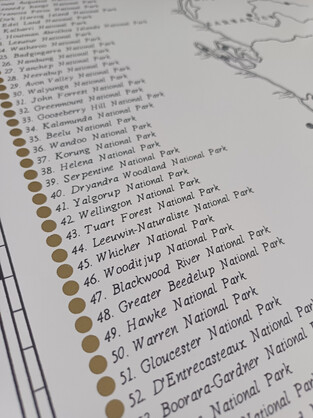 National Park
23. Lesueur National Park
24. Watheroo National Park
25. Badgingarra National Park
26. Nambung National Park
27. Yanchep National Park
28. Neerabup National Park
29. Avon Valley National Park
30. Walyunga National Park
31. John Forrest National Park
32. Greenmount National Park
33. Gooseberry Hill National Park
34. Kalamunda National Park
35. Beelu National Park
36. Wandoo National Park
37. Korung National Park
38. Helena National Park
39. Serpentine National Park
40. Dryandra Woodland National Park
41. Yalgorup National Park
42. Wellington National Park
43. Tuart Forest National Park
44. Leeuwin-Naturaliste National Park
45. Whicher National Park
46. Wooditjup National Park
47. Blackwood River National Park
48. Greater Beedelup National Park
49. Hawke National Park
50. Warren National Park
51. Gloucester National Park
52. D'Entrecasteaux National Park
Boorara-Gardner National
National Park